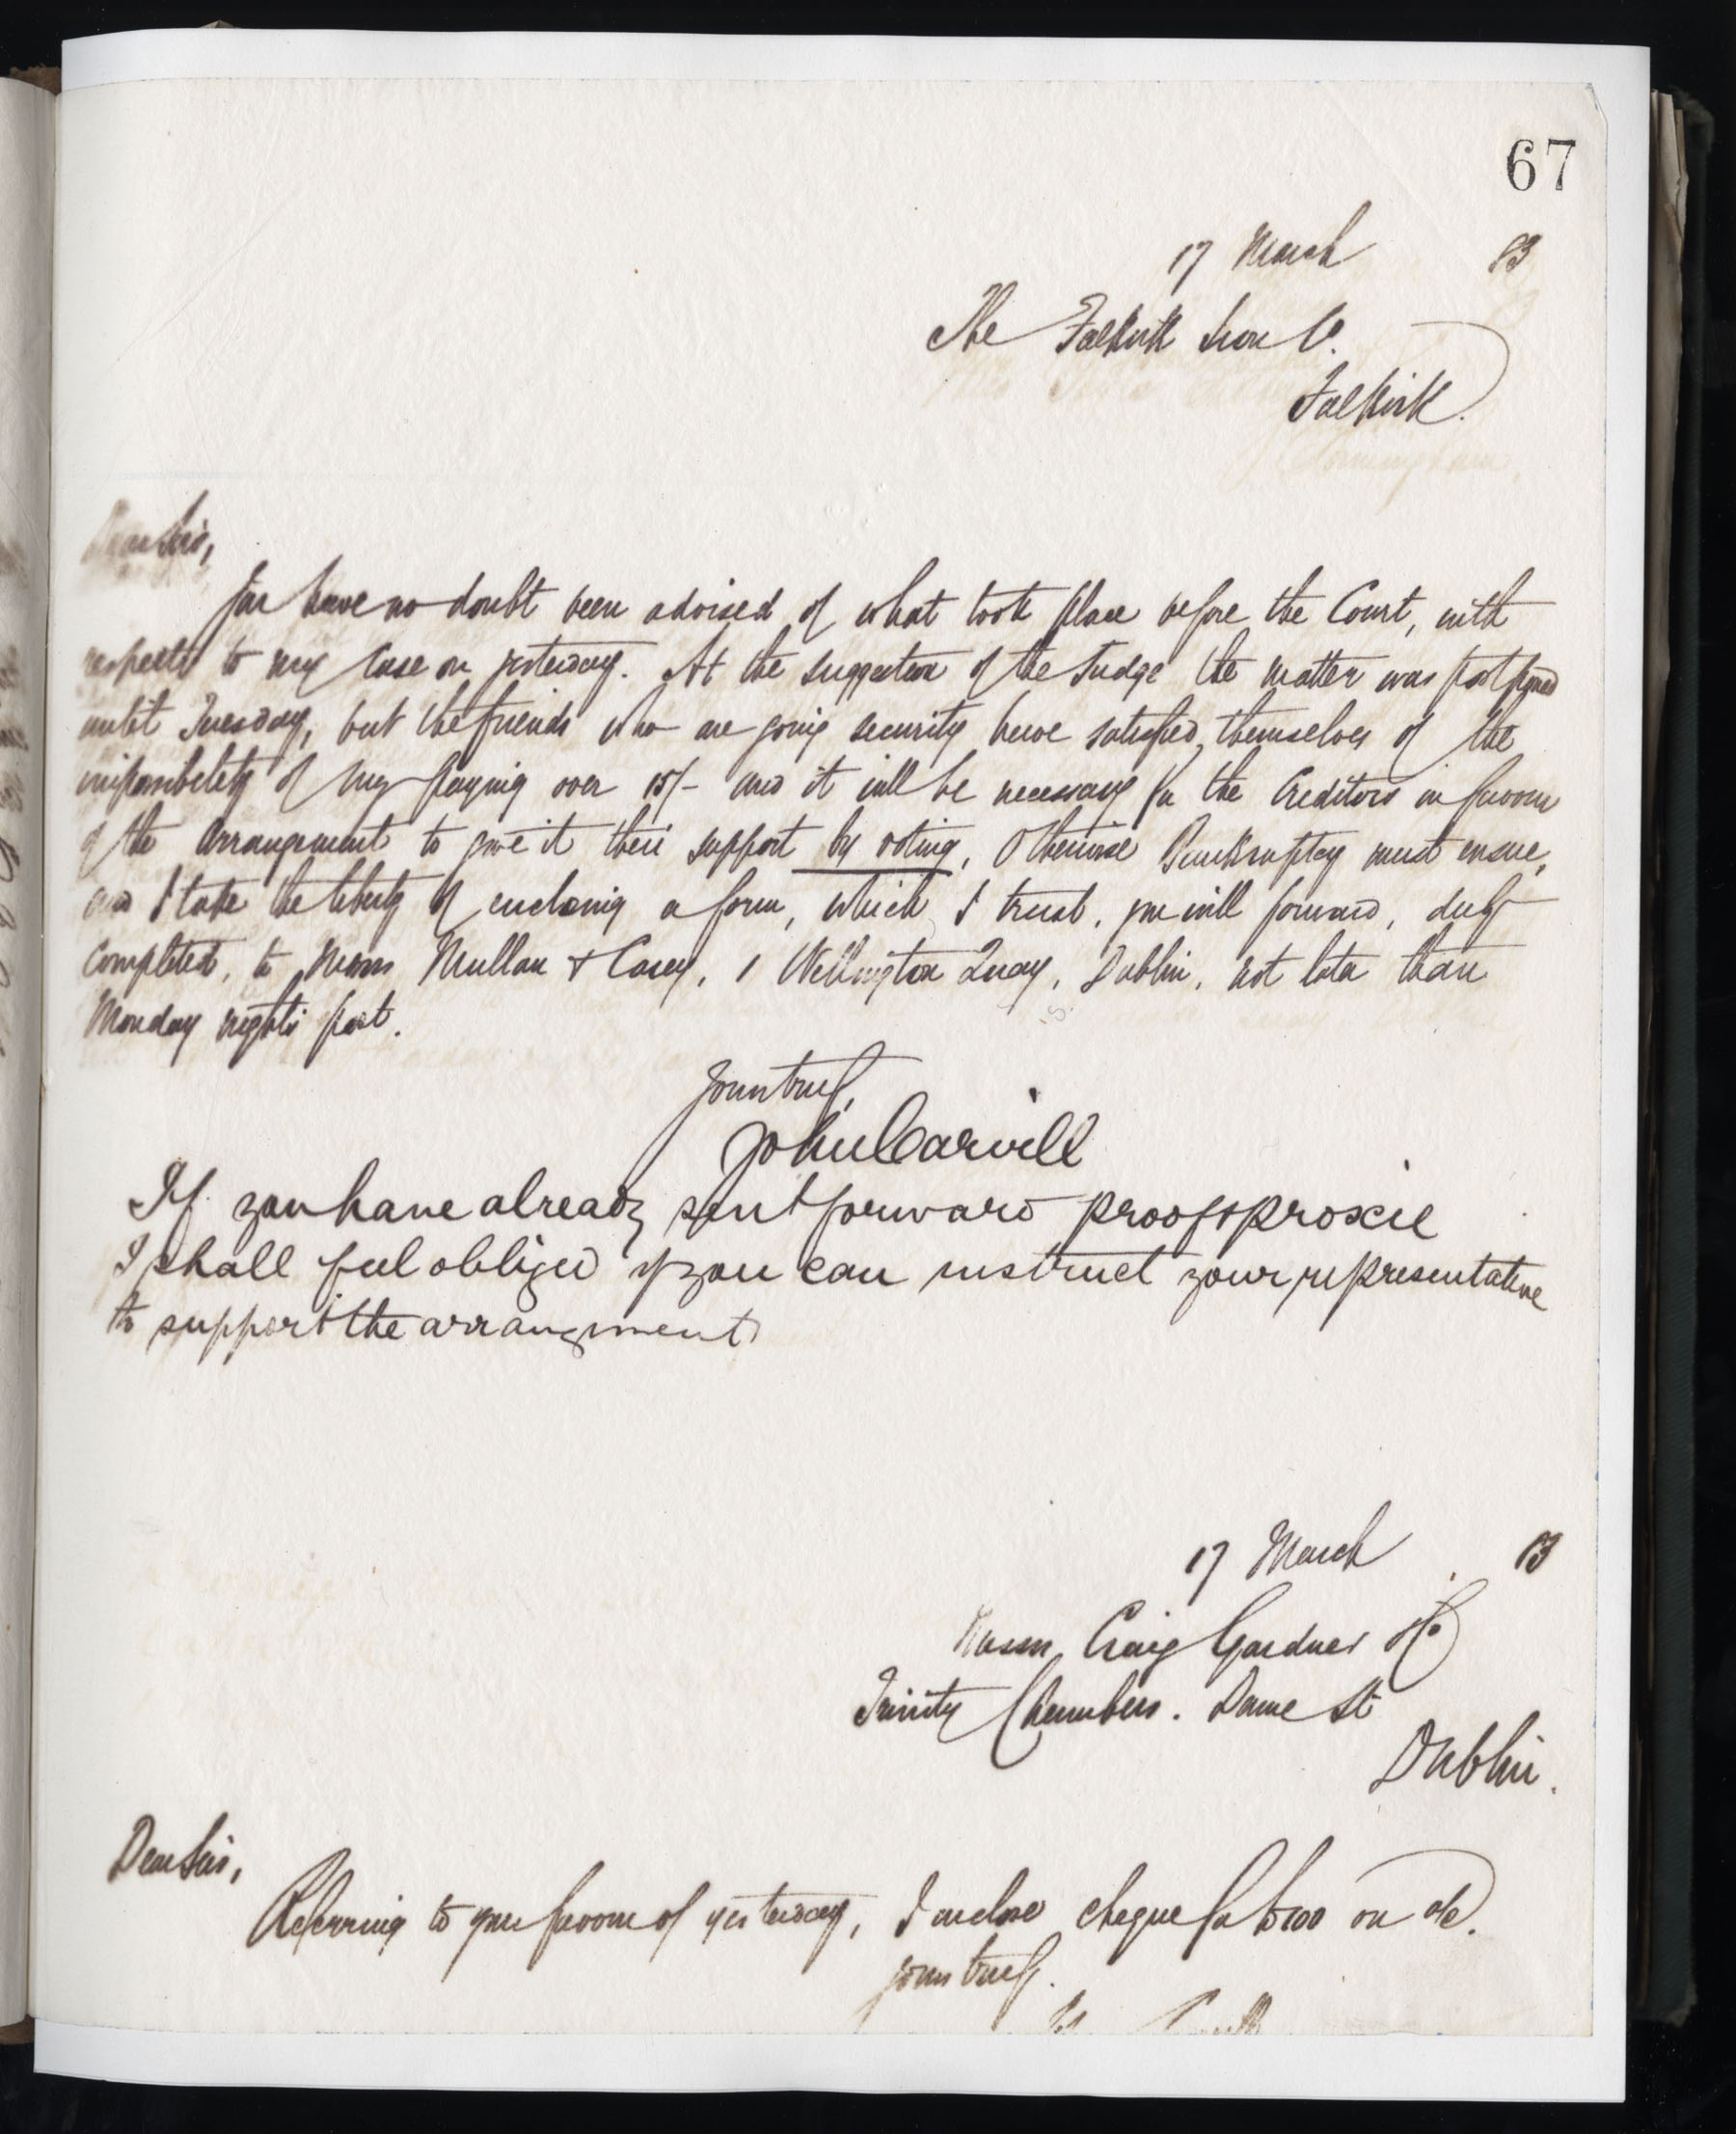 67
17 March 83
The Falkirk Iron Co.
Falkirk.
Dear Sirs,
You have no doubt been advised of what took place before the Court, with
respects to my case on yesterday. At the suggestion of the Judge the matter was postponed
until Tuesday, but the friends who are going security have satisfied themselves of the
impossibility of my paying over 15/- and it will be necessary for the Creditors in favour
of the Arrangement to give it their support by voting, Otherwise Bankruptcy must ensue,
and I take the liberty of enclosing a form, which I trust, you will forward, duly
completed, to Messrs Mullan & Casey, 1 Wellington Quay, Dublin, not later than
Monday nights post.
Yours truly,
John Carvill
If you have already sent forward proof & proxie
I shall feel obliged if you can instruct your representative
to support the arrangment
17 March 83
Messrs Craig Gardner & Co
Trinity Chambers. Dame St
Dublin.
Dear Sirs,
Referring to your favour of yesterday, I enclose cheque for £100 on a/c.
Yours truly.